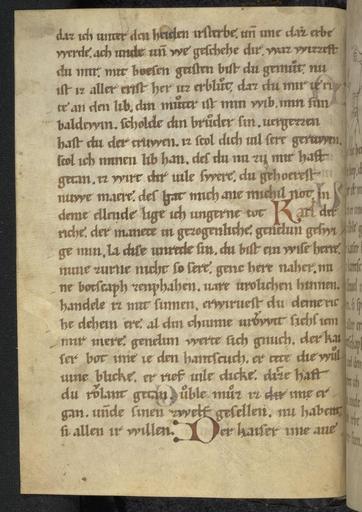 dar ich unter den heiden irsterbe. un̄ ime daz erbe
werde. ach unde un̄ we geschehe dir. war wurzest
du mir. mit boesen geisten bist du gemůt. nu
ist iz aller erist her uz erblůt. daz du mir ie rî
te an den lib. din můter ist min wib. min sun
baldewin. scholde din brůder sin. uergezzen
hast du der truwen. iz scol dich uil sere geruwen.
scol ich minen lib han. des du nu zů mir hast
getan. iz wirt dir uile swere. du gehoerest
niwe maere. des gat mich ane michil not. in
deme ellende lige ich ungerne tot. Karl der
riche. der manete in gezogenliche. genelun geswi
ge min. la dise unrede sin. du bist ein wise herre.
nune zurne nicht so sere. gene here naher. mi
ne botscaph zenphahen. uare urolichen hinnen.
handele iz mit sinnen. erwiruest du deme ric
he dehein ere. al din chunne urowit sichs im
mir mere. genelun werte sich gnůch. der kai
ser bot ime ie den hantscuch. er tete die wůl
uine blicke. er rief uile dicke. dize hast
du rolant getan. uble můz iz dir ime er
gan. unde sinen zwelf gesellen. nu habent
si allen ir willen. Der kaiser ime aue